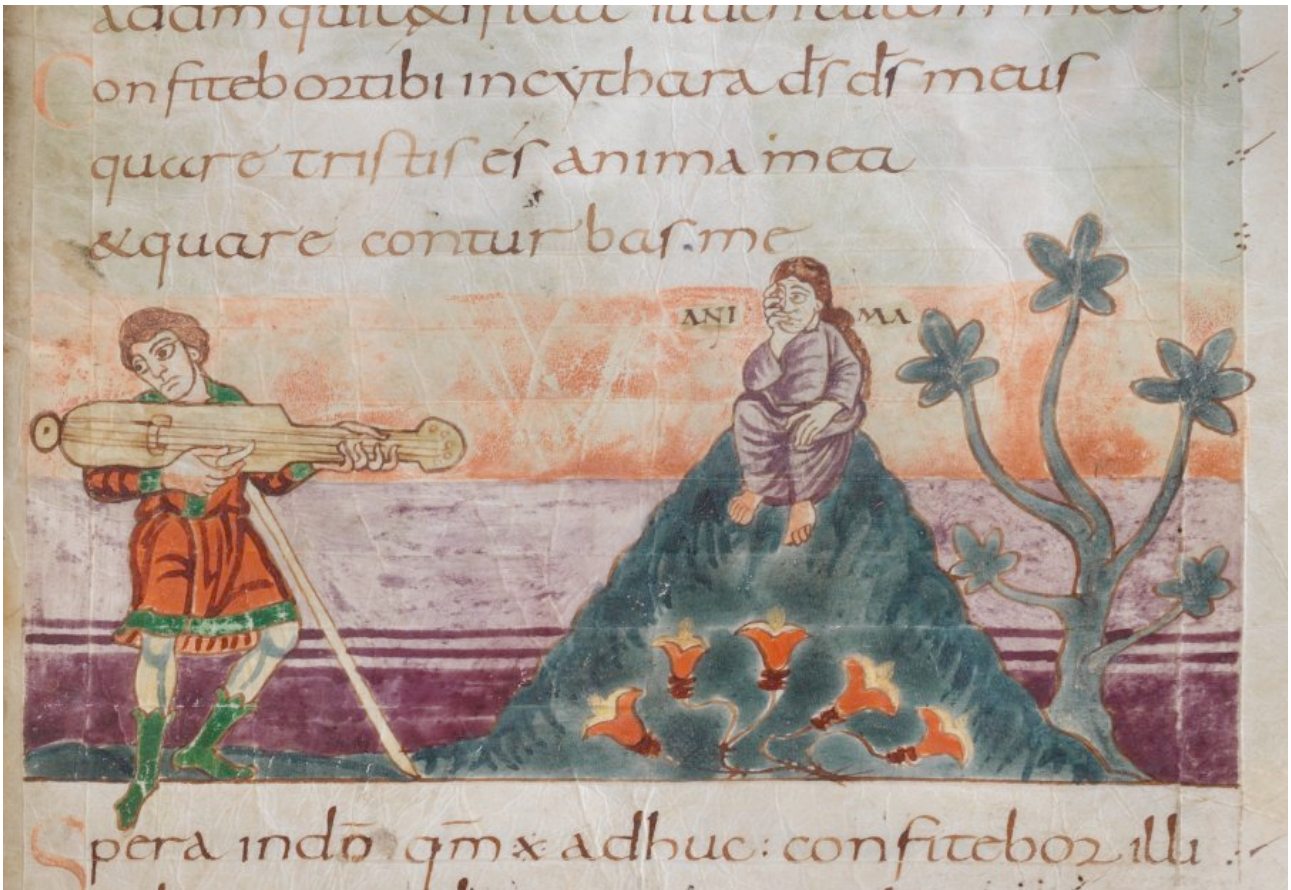 Confitebor tibi in cythara ds̄ ds̄ meus
quare tristis es anima mea
&quare conturbas me
ANI MA
Spera in dō qm̄ adhuc: confitebor illi